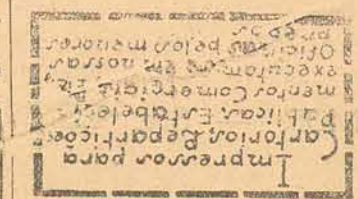 Impressos para
Cartorios Repartições
Publicas Estabeleci-
mentos Comerciais Etc,
executamos em nossas
Oficinas pelos menores
preços